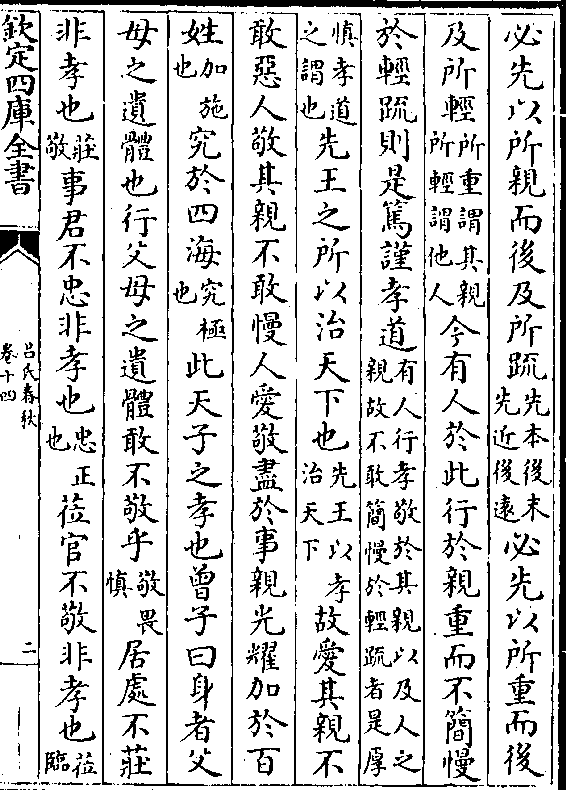 必先以所親而後及所䟽先本後末先近後遠必先以所重而後
及所輕所重謂其親所輕謂他人今有人於此行於親重而不簡慢
於輕䟽則是篤謹孝道有人行孝敬於其親以及人之親故不敢簡慢於輕䟽者是厚
慎孝道之謂也先王之所以治天下也先王以孝治天下故愛其親不
敢惡人敬其親不敢慢人愛敬盡於事親光耀加於百
姓加施也究於四海究極也此天子之孝也曾子曰身者父
母之遺體也行父母之遺體敢不敬乎敬畏慎居處不莊
非孝也莊敬事君不忠非孝也忠正也莅官不敬非孝也莅臨
欽定四庫全書
吕氏春秋
卷十四
二